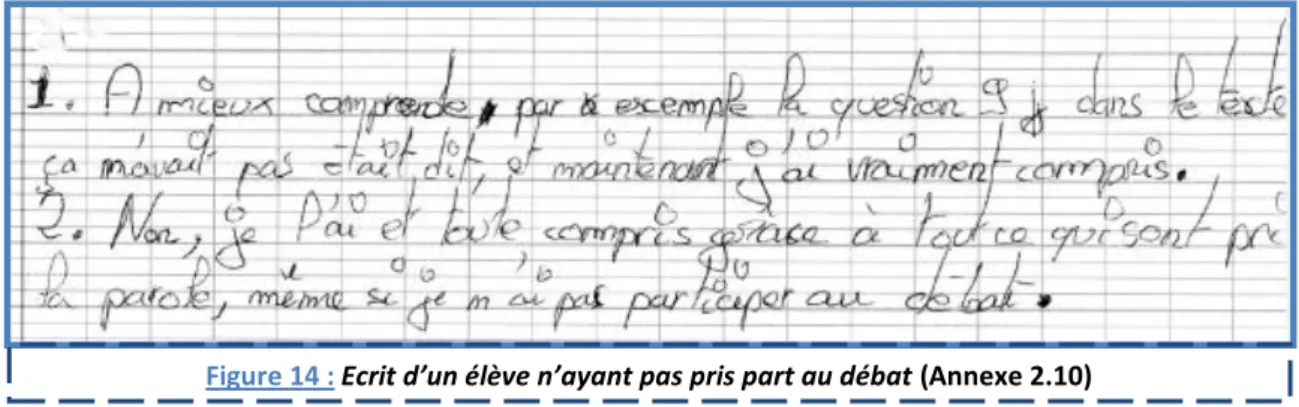 1. A mieux comprende, par escemple la question 9 dans le texte
ça m'avait pas étaît dit, et maintenant j'ai vraiment compris.
2. Non, je l'ai et toute compris grâce à tout ce qui sont pri
la parole, même si je n'ai pas participer au débat.
Figure 14 : Ecrit d'un élève n'ayant pas pris part au débat (Annexe 2.10)